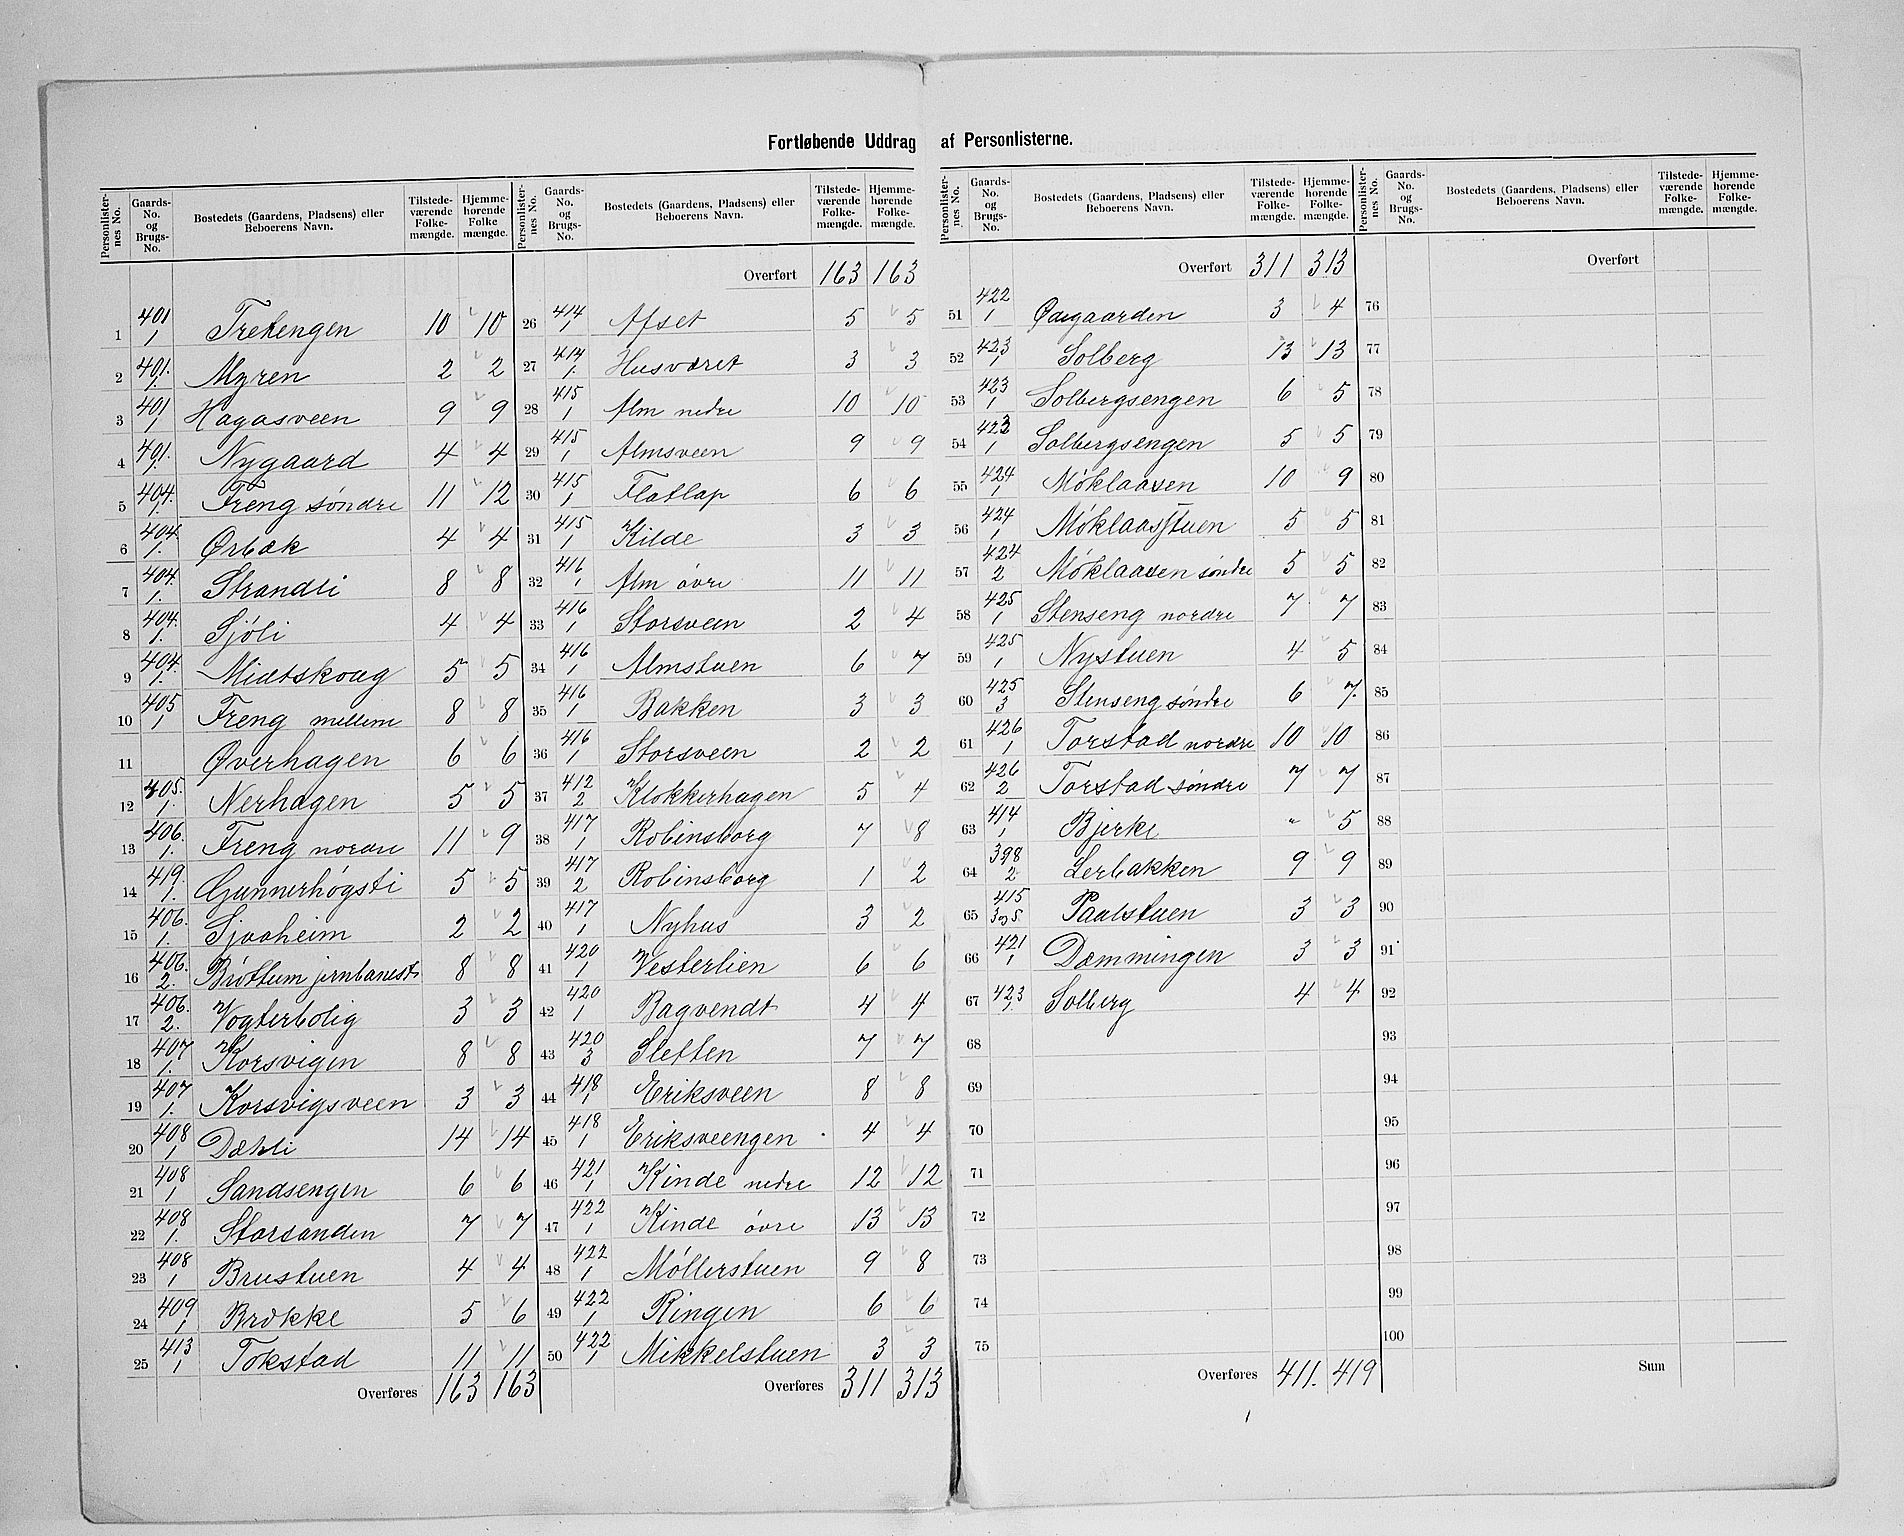 Fortløbende Uddrag af Personlisterne.
Personlister-nes No. | Gaards-No. og Brugs-No. | Bostedets (Gaardens, Pladsens) eller Beboerens Navn. | Tilstede-værende Folke-mængde. | Hjemme-hørende Folke mængde.
1 401/1 Tretengen 10 10
2 401./1. Myren 2 2
3 401/1 Hagasveen 9 9
4 401./1. Nygaard 4 4
5 404./1. Freng søndre 11 12
6 404./1. Ørbæk 4 4
7 404./1. Strandli 8 8
8 404./1. Sjøli 4 4
9 404./1. Midtskoug 5 5
10 405/1 Freng mellem 8 8
11 Øverhagen 6 6
12 405./1. Nerhagen 5 5
13 406./1. Freng nordre 11 9
14 419./1. Gunnerhøgsti 5 5
15 406./1. Sjoaheim 2 2
16 406./2. Brøttum jernbanest. 8 8
17 406./2. Vogterbolig 3 3
18 407/1. Korsvigen 8 8
19 407/1. Korsvigsveen 3 3
20 408/1 Dæhli 14 14
21 408/1 Sandsengen 6 6
22 408/1. Storsanden 7 7
23 408/1 Brustuen 4 4
24 409/1 Brække 5 6
25 413/1 Tokstad 11 11
Overføres 163 163
Personlister-nes No. | Gaards-No. og Brugs-No. | Bostedets (Gaardens, Pladsens) eller Beboerens Navn. | Tilstede-værende Folke-mængde. | Hjemme-hørende Folke-mængde.
Overført 163 163
26 414/1 Afset 5 5
27 414/1. Husværet 3 3
28 415/1 Alm nedre 10 10
29 415/1 Almsveen 9 9
30 415/1 Flatlap 6 6
31 415/1 Kilde 3 3
32 416/1 Alm øvre 11 11
33 416/1 Storsveen 2 4
34 416/1 Almstuen 6 7
35 416/1 Bakken 3 3
36 416/1 Storsveen 2 2
37 412/2 Klokkerhagen 5 4
38 417/1 Robinsborg 7 8
39 417/2 Robinsborg 1 2
40 417/1 Nyhus 3 2
41 420/1 Vesterlien 6 6
42 420/1 Bagvendt 4 4
43 420/3 Sletten 7 7
44 418/1 Eriksveen 8 8
45 418/1 Eriksveengen 4 4
46 421/1 Kinde nedre 12 12
47 422/1 Kinde øvre 13 13
48 422/1 Møllerstuen 9 8
49 422/1 Ringen 6 6
50 422/1 Mikkelstuen 3 3
Overføres 311 313
Personlister-nes No. | Gaards-No. og Brugs-No. | Bostedets (Gaardens, Pladsens) eller Beboerens Navn. | Tilstede-værende Folke-mængde. | Hjemme-hørende Folke-mængde.
Overført 311 313
51 422/1 Øigaarden 3 4
52 423/1 Solberg 13 13
53 423/1 Solbergsengen 6 5
54 423/1 Solbergsengen 5 5
55 424/1 Møklaasen 10 9
56 424/1 Møklaasstuen 5 5
57 424/2 Møklaasen søndre 5 5
58 425/1 Stenseng nordre 7 7
59 425/1 Nystuen 4 5
60 425/3 Stenseng søndre 6 7.
61 426/1 Torstad nordre 10 10
62 426/2 Torstad søndre 7 7
63 414/1 Bjerke " 5
64 398/2 Lerbakken 9 9
65 415/3 Paalstuen 3 3
66 421/1 Dæmmingen 3 3
67 423/1. Solberg 4 4
68
69
70
71
72
73
74
75
Overføres 411. 419
Personlister-nes No. | Gaards-No. og Brugs-No. | Bostedets (Gaardens, Pladsens) eller Beboerens Navn. | Tilstede-værende Folke-mængde. | Hjemme-hørende Folke-mængde.
Overført
76
77
78
79
80
81
82
83
84
85
86
87
88
89
90
91
92
93
94
95
96
97
98
99
100
Sum